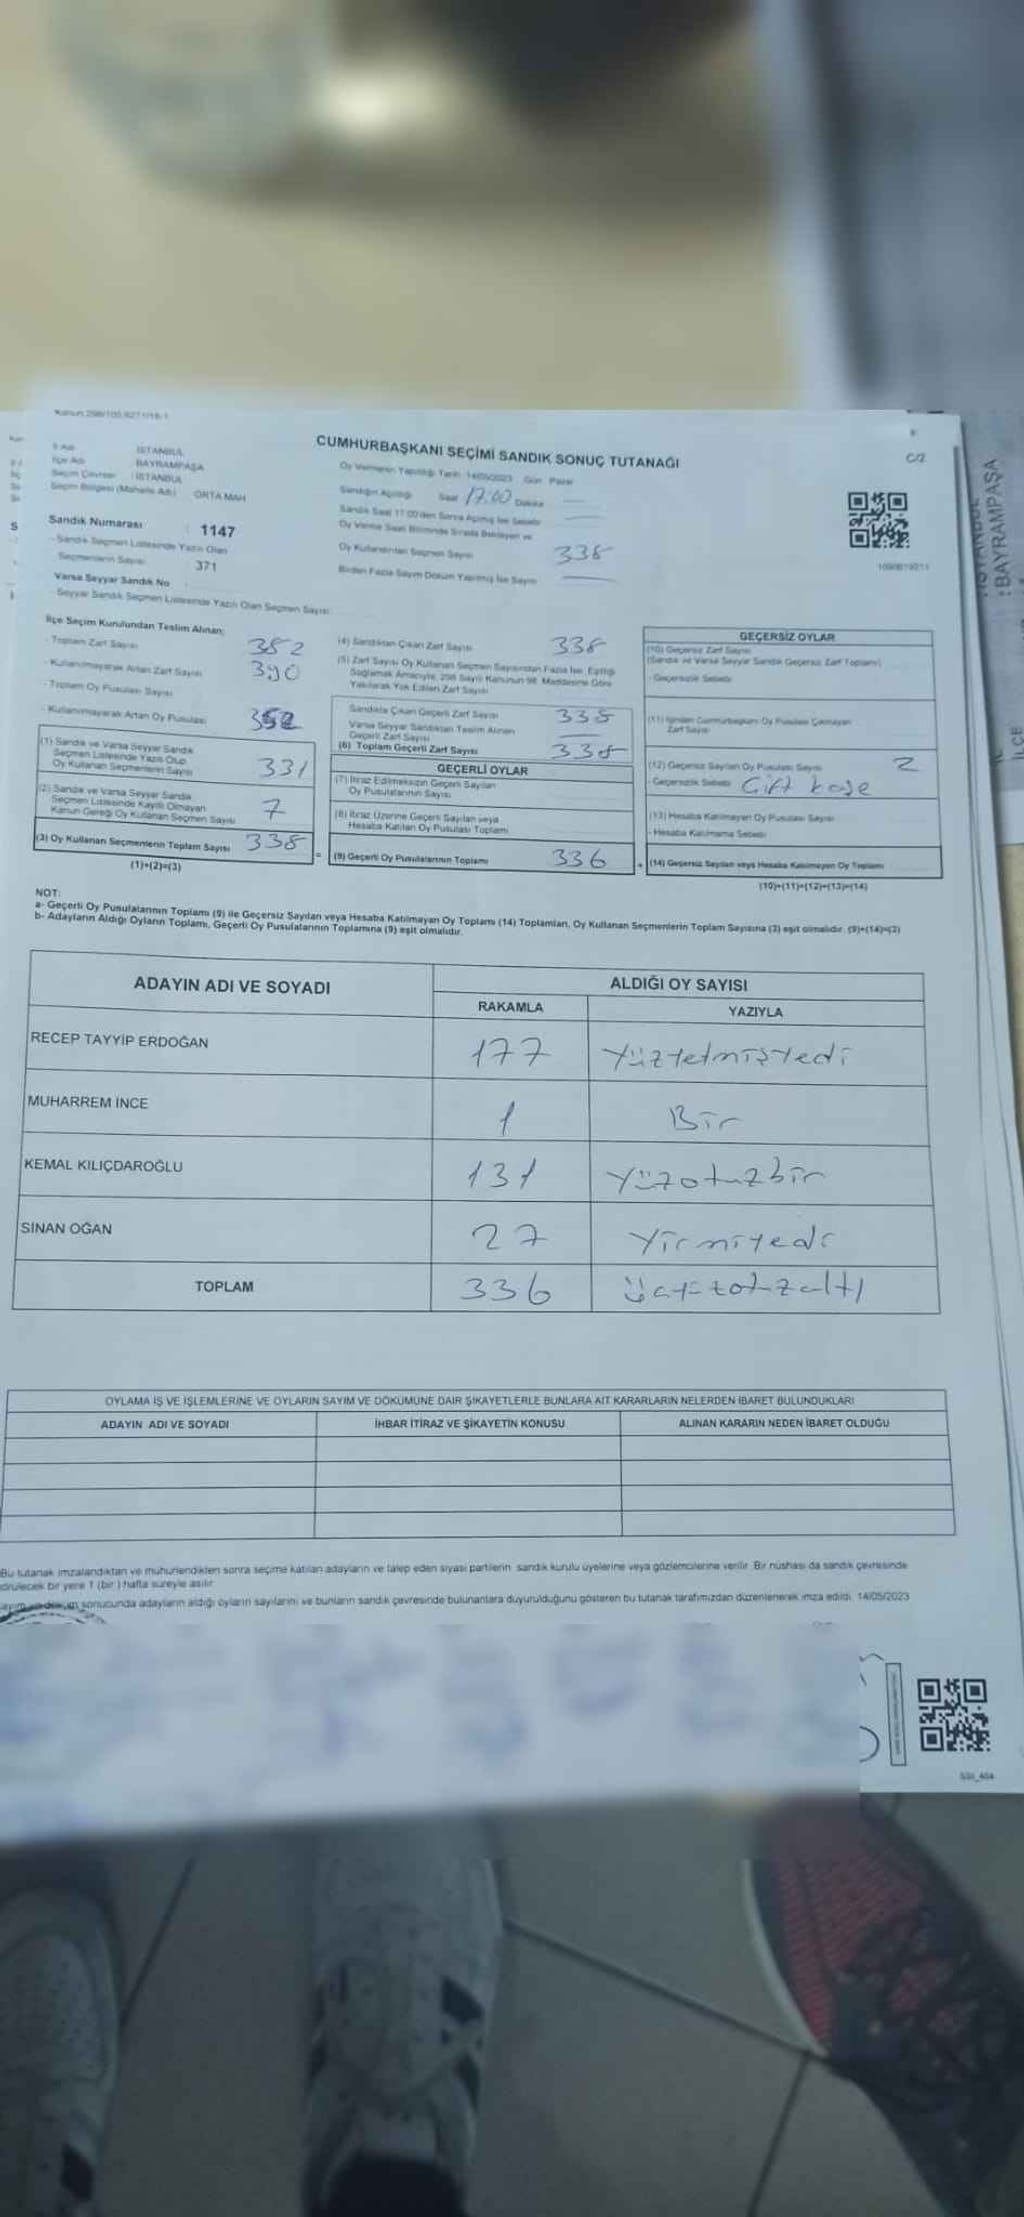 Kanun:298/105,6271/18-1
C/2
CUMHURBAŞKANI SEÇİMİ SANDIK SONUÇ TUTANAĞI
İl Adı : İSTANBUL
İlçe Adı : BAYRAMPAŞA
Seçim Çevresi : İSTANBUL
Seçim Bölgesi (Mahalle Adı) : ORTA MAH
Sandık Numarası : 1147
- Sandık Seçmen Listesinde Yazılı Olan
Seçmenlerin Sayısı : 371
Varsa Seyyar Sandık No :
- Seyyar Sandık Seçmen Listesinde Yazılı Olan Seçmen Sayısı:
Oy Vermenin Yapıldığı Tarih: 14/05/2023 Gün: Pazar
Sandığın Açıldığı Saat 17:00 Dakika
Sandık Saat 17:00'den Sonra Açılmış İse Sebebi
Oy Verme Saati Bitiminde Sırada Bekleyen ve
Oy Kullandırılan Seçmen Sayısı 338
Birden Fazla Sayım Döküm Yapılmış İse Sayısı
İlçe Seçim Kurulundan Teslim Alınan;
- Toplam Zarf Sayısı 382
- Kullanılmayarak Artan Zarf Sayısı
- Toplam Oy Pusulası Sayısı
- Kullanılmayarak Artan Oy Pusulası
(1) Sandık ve Varsa Seyyar Sandık
Seçmen Listesinde Yazılı Olup
Oy Kullanan Seçmenlerin Sayısı 331
(2) Sandık ve Varsa Seyyar Sandık
Seçmen Listesinde Kayıtlı Olmayan
Kanun Gereği Oy Kullanan Seçmen Sayısı 7
(3) Oy Kullanan Seçmenlerin Toplam Sayısı 338
(1)+(2)=(3)
(4) Sandıktan Çıkan Zarf Sayısı 338
(5) Zarf Sayısı Oy Kullanan Seçmen Sayısından Fazla İse, Eşitliği
Sağlamak Amacıyla, 298 Sayılı Kanunun 98. Maddesine Göre
Yakılarak Yok Edilen Zarf Sayısı
Sandıkta Çıkan Geçerli Zarf Sayısı 338
Varsa Seyyar Sandıktan Teslim Alınan
Geçerli Zarf Sayısı
(6) Toplam Geçerli Zarf Sayısı 338
GEÇERLİ OYLAR
(7) İtiraz Edilmeksizin Geçerli Sayılan
Oy Pusulalarının Sayısı
(8) İtiraz Üzerine Geçerli Sayılan veya
Hesaba Katılan Oy Pusulası Toplamı
= (9) Geçerli Oy Pusulalarının Toplamı 336
GEÇERSİZ OYLAR
(10) Geçersiz Zarf Sayısı
(Sandık ve Varsa Seyyar Sandık Geçersiz Zarf Toplamı)
- Geçersizlik Sebebi
(11) İçinden Cumhurbaşkanı Oy Pusulası Çıkmayan
Zarf Sayısı
(12) Geçersiz Sayılan Oy Pusulası Sayısı 2
- Geçersizlik Sebebi Çift kaşe
(13) Hesaba Katılmayan Oy Pusulası Sayısı
- Hesaba Katılmama Sebebi
+ (14) Geçersiz Sayılan veya Hesaba Katılmayan Oy Toplamı
(10)+(11)+(12)+(13)=(14)
NOT:
a- Geçerli Oy Pusulalarının Toplamı (9) ile Geçersiz Sayılan veya Hesaba Katılmayan Oy Toplamı (14) Toplamları, Oy Kullanan Seçmenlerin Toplam Sayısına (3) eşit olmalıdır. (9)+(14)=(3)
b- Adayların Aldığı Oyların Toplamı, Geçerli Oy Pusulalarının Toplamına (9) eşit olmalıdır.
ADAYIN ADI VE SOYADI ALDIĞI OY SAYISI
RAKAMLA YAZIYLA
RECEP TAYYİP ERDOĞAN 177 Yüzyetmişyedi
MUHARREM İNCE 1 Bir
KEMAL KILIÇDAROĞLU 131 Yüzotuzbir
SİNAN OĞAN 27 Yirmiyedi
TOPLAM 336 üçyüzotuzaltı
OYLAMA İŞ VE İŞLEMLERİNE VE OYLARIN SAYIM VE DÖKÜMÜNE DAİR ŞİKAYETLERLE BUNLARA AİT KARARLARIN NELERDEN İBARET BULUNDUKLARI
ADAYIN ADI VE SOYADI İHBAR İTİRAZ VE ŞİKAYETİN KONUSU ALINAN KARARIN NEDEN İBARET OLDUĞU
Bu tutanak imzalandıktan ve mühürlendikten sonra seçime katılan adayların ve talep eden siyasi partilerin sandık kurulu üyelerine veya gözlemcilerine verilir. Bir nüshası da sandık çevresinde
bir yere 1 (bir) hafta süreyle asılır.
sonucunda adayların aldığı oyların sayılarını ve bunların sandık çevresinde bulunanlara duyurulduğunu gösteren bu tutanak tarafımızdan düzenlenerek imza edildi. 14/05/2023
BAYRAMPAŞA
İLÇE